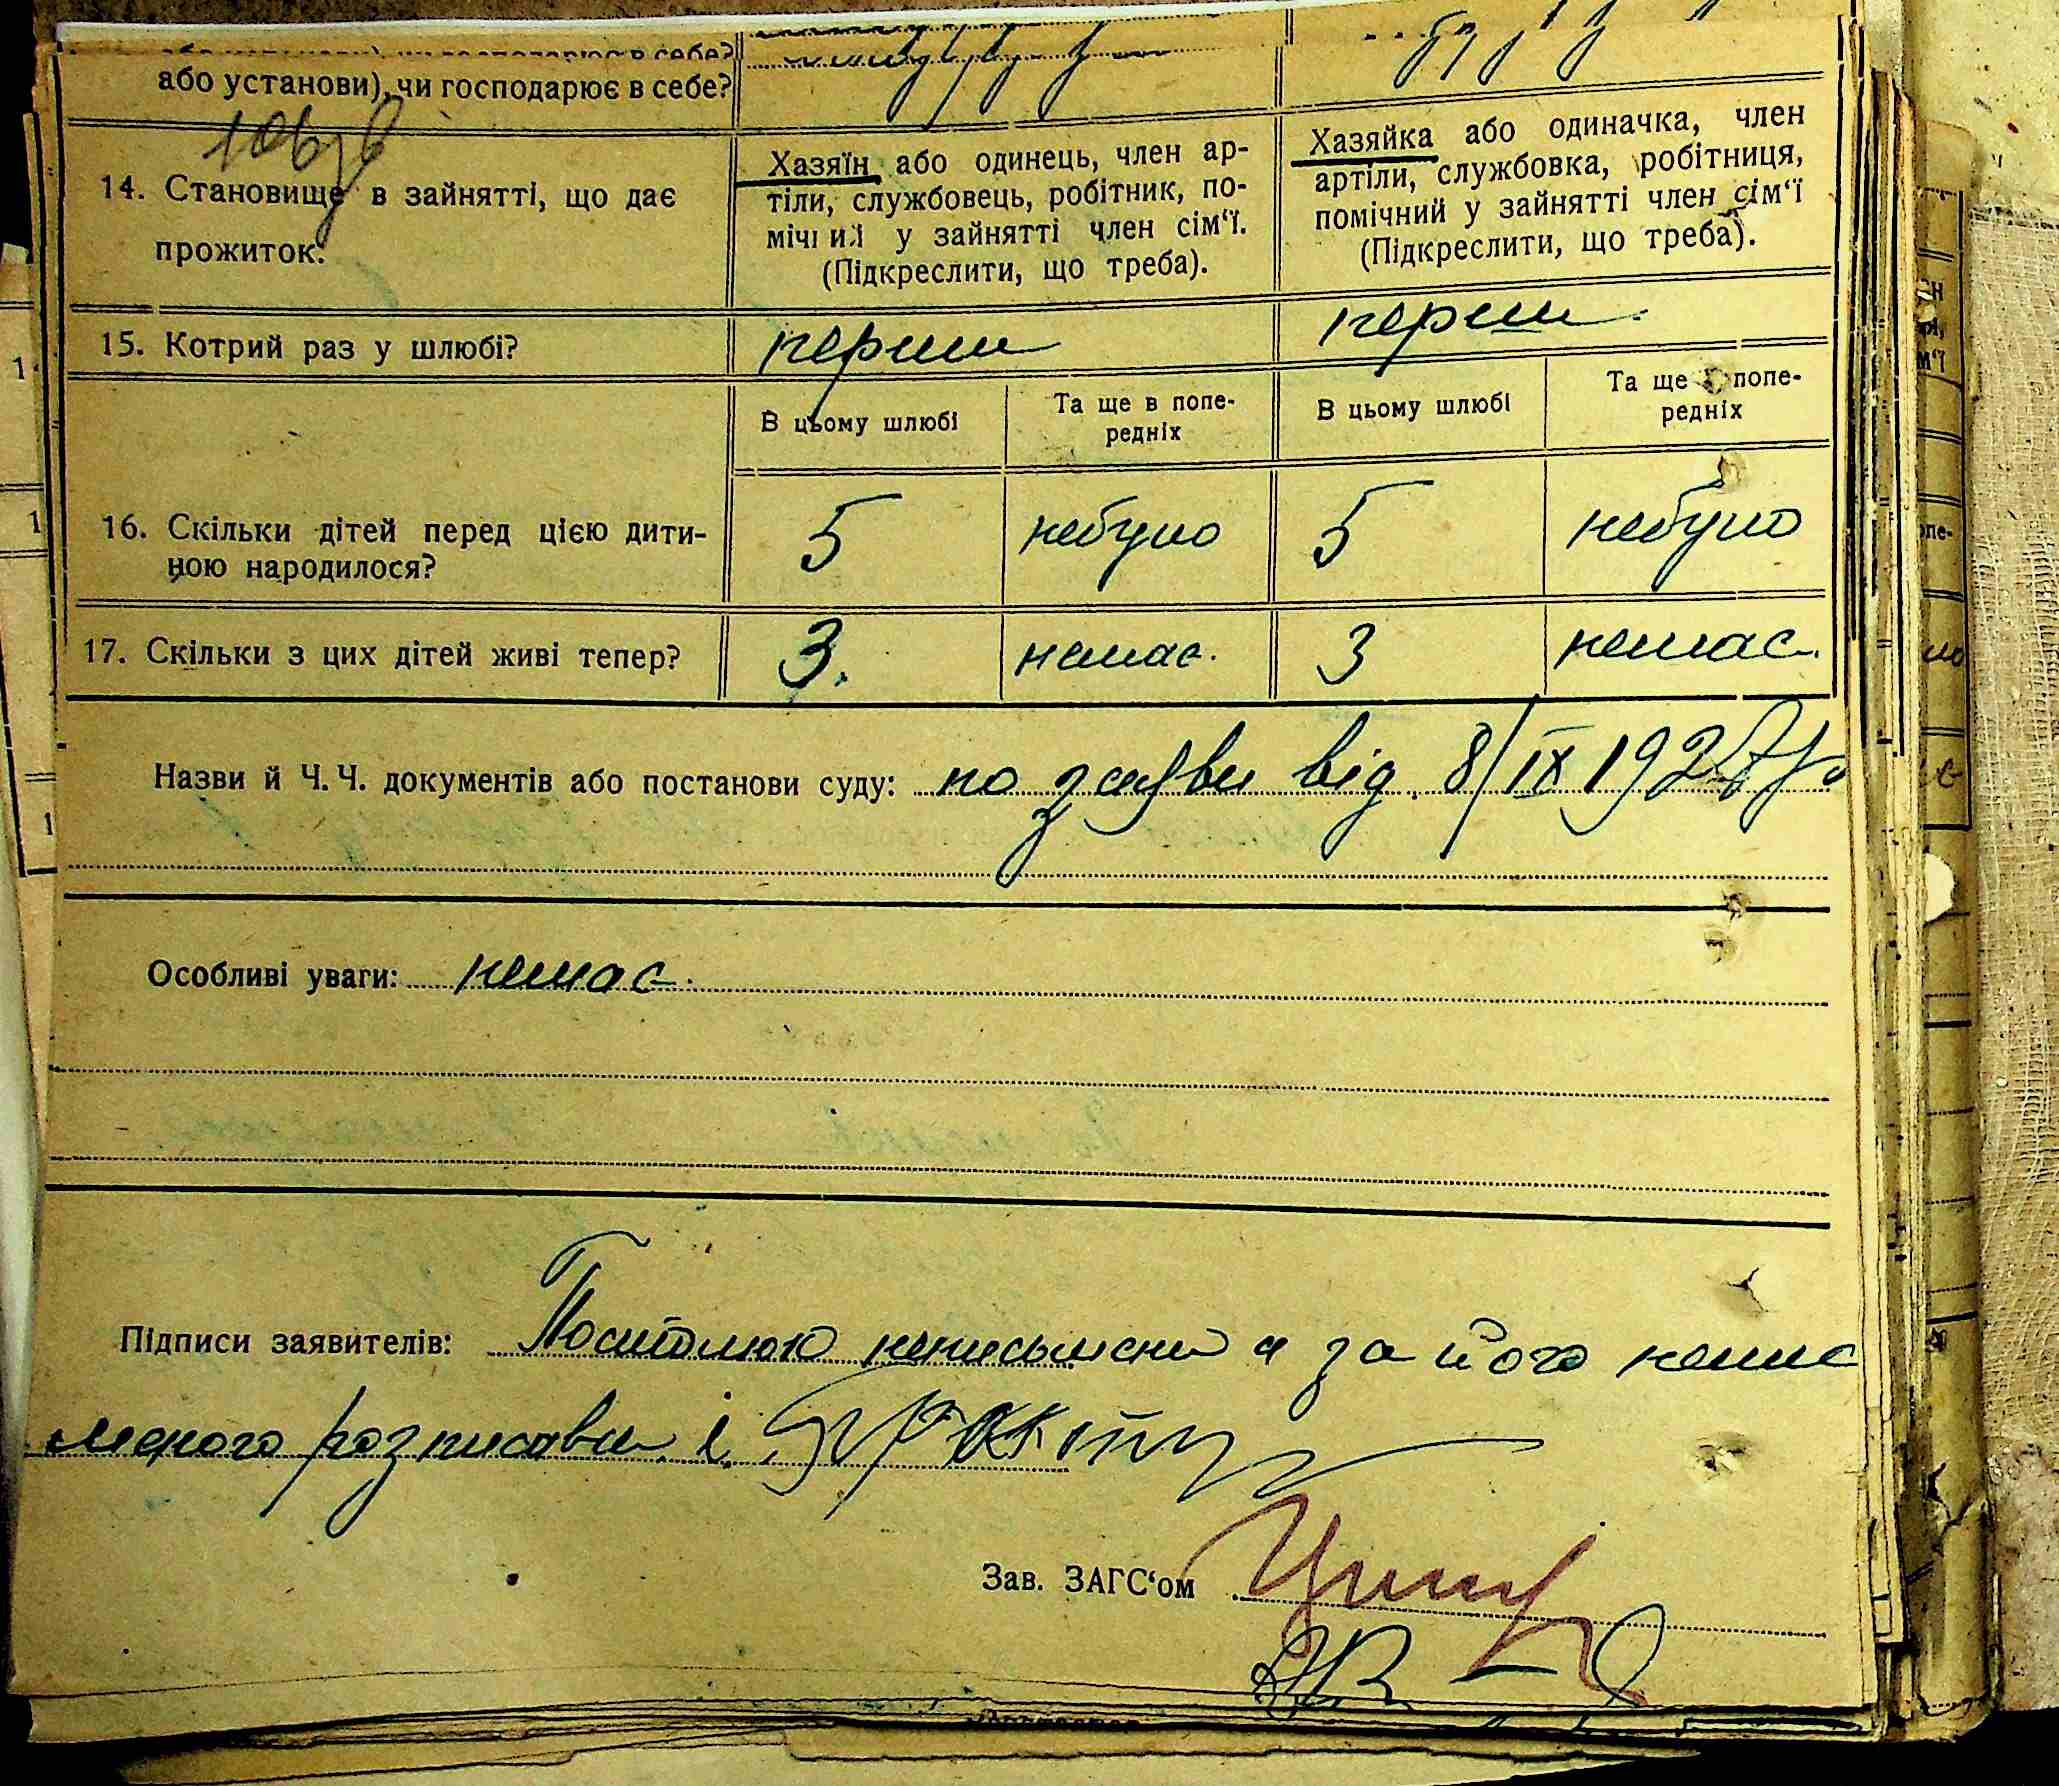 або установи), чи господарює в себе?
14. Становище в зайнятті, що дає
прожиток:
Хазяїн або одинець, член ар-
тіли, службовець, робітник, по-
мічний у зайнятті член сім'ї.
(Підкреслити, що треба).
Хазяйка або одиначка, член
артіли, службовка, робітниця,
помічний у зайнятті член сім'ї
(Підкреслити, що треба).
15. Котрий раз у шлюбі?
перши
перши.
В цьому шлюбі
Та ще в попе-
редніх
В цьому шлюбі
Та ще в попе-
редніх
16. Скільки дітей перед цією дити-
ною народилося?
5
небуло
5
небуло
17. Скільки з цих дітей живі тепер?
3.
немає.
3
немає.
Назви й Ч. Ч. документів або постанови суду: по заяви від 8/IX 1927р.
Особливі уваги: немає.
Підписи заявителів: неписьмени а за його
розписавси
Зав. ЗАГС'ом